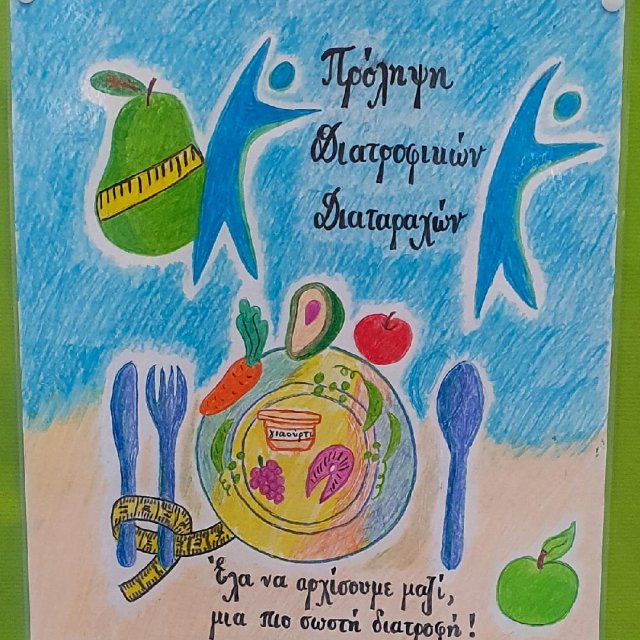 Πρόληψη
Διατροφικών
Διαταραχών
γιαούρτι
Έλα να αρχίσουμε μαζί,
μια πιο σωστή διατροφή!